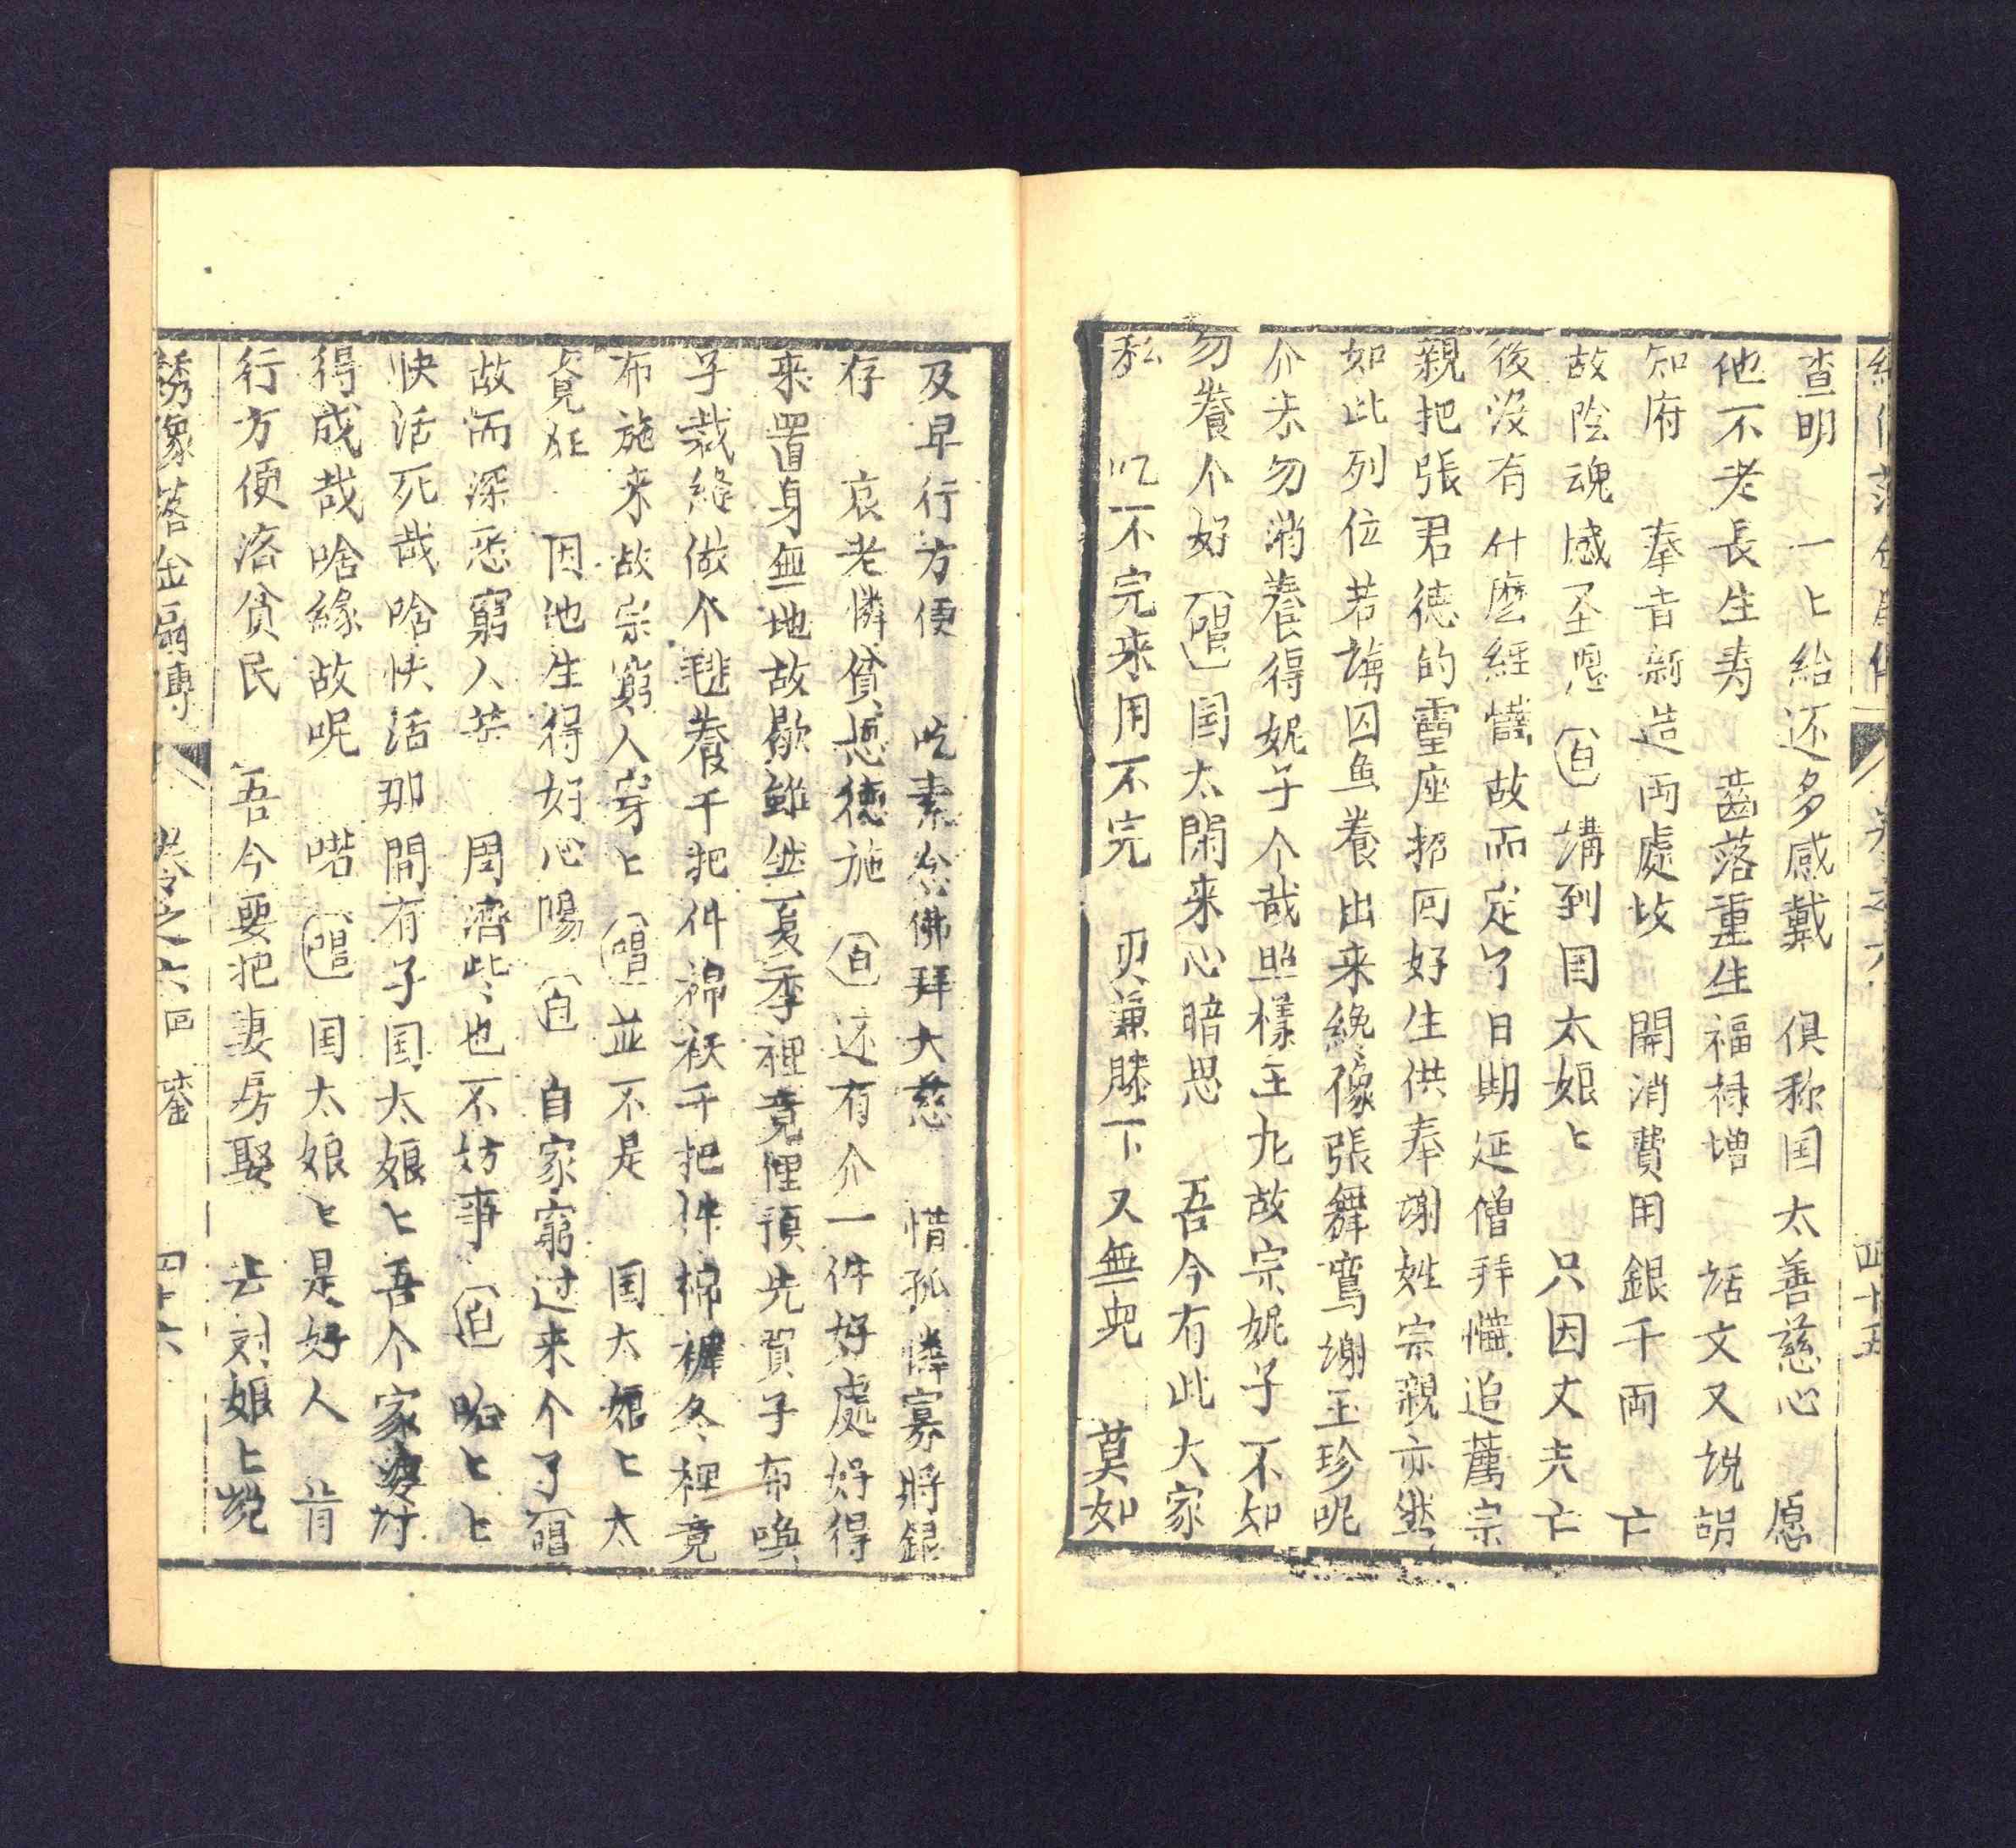 查明　一上給还多感戴　俱称国太善慈心　愿
他不老長生寿　齒落重生福祿增　話文又説胡
知府　奉旨新造両處坟　開消費用銀千両　亡
故陰魂感圣恩（白）講到国太娘匕　只因丈夫亡
後沒有什麼經懺故而定了日期延僧拜懺追薦宗
親把張君徳的霊座招回好生供奉謝姓宗親亦然
如此列位若講囚魚養出来絶像張舞鸾謝玉珍呢
介夲勿消養得妮子个哉照樣王九故宗妮子不知
勿養个好（唱）国太閑来心暗思　吾今有此大家
私　吃不完来用不完　又兼膝下又無児　莫如
及早行方便　吃素念佛拜大慈　惜孤憐寡將銀
存　哀老憐貧恩徳施（白）还有介一件好處好得
来置身無地故歇雖然夏季裡竟俚預先買子布喚
子裁縫做个毴養千把件綿袄千把件棉褲冬裡竟
布施来故宗窮人穿匕（唱）並不是　国太娘匕太
覔狂　因他生得好心腸（白）自家窮过来个了（唱
故而深悉窮人苦　周濟些些也不妨事（白）哈匕匕
快活死哉啥快活那間有子国太娘匕吾个家婆討
得成哉啥緣故呢　喏（唱）国太娘匕是好人　肯
行方便済貧民　吾今要把妻房娶　去對娘上説
綉像落金扇傳　卷之六　四十六
四十五